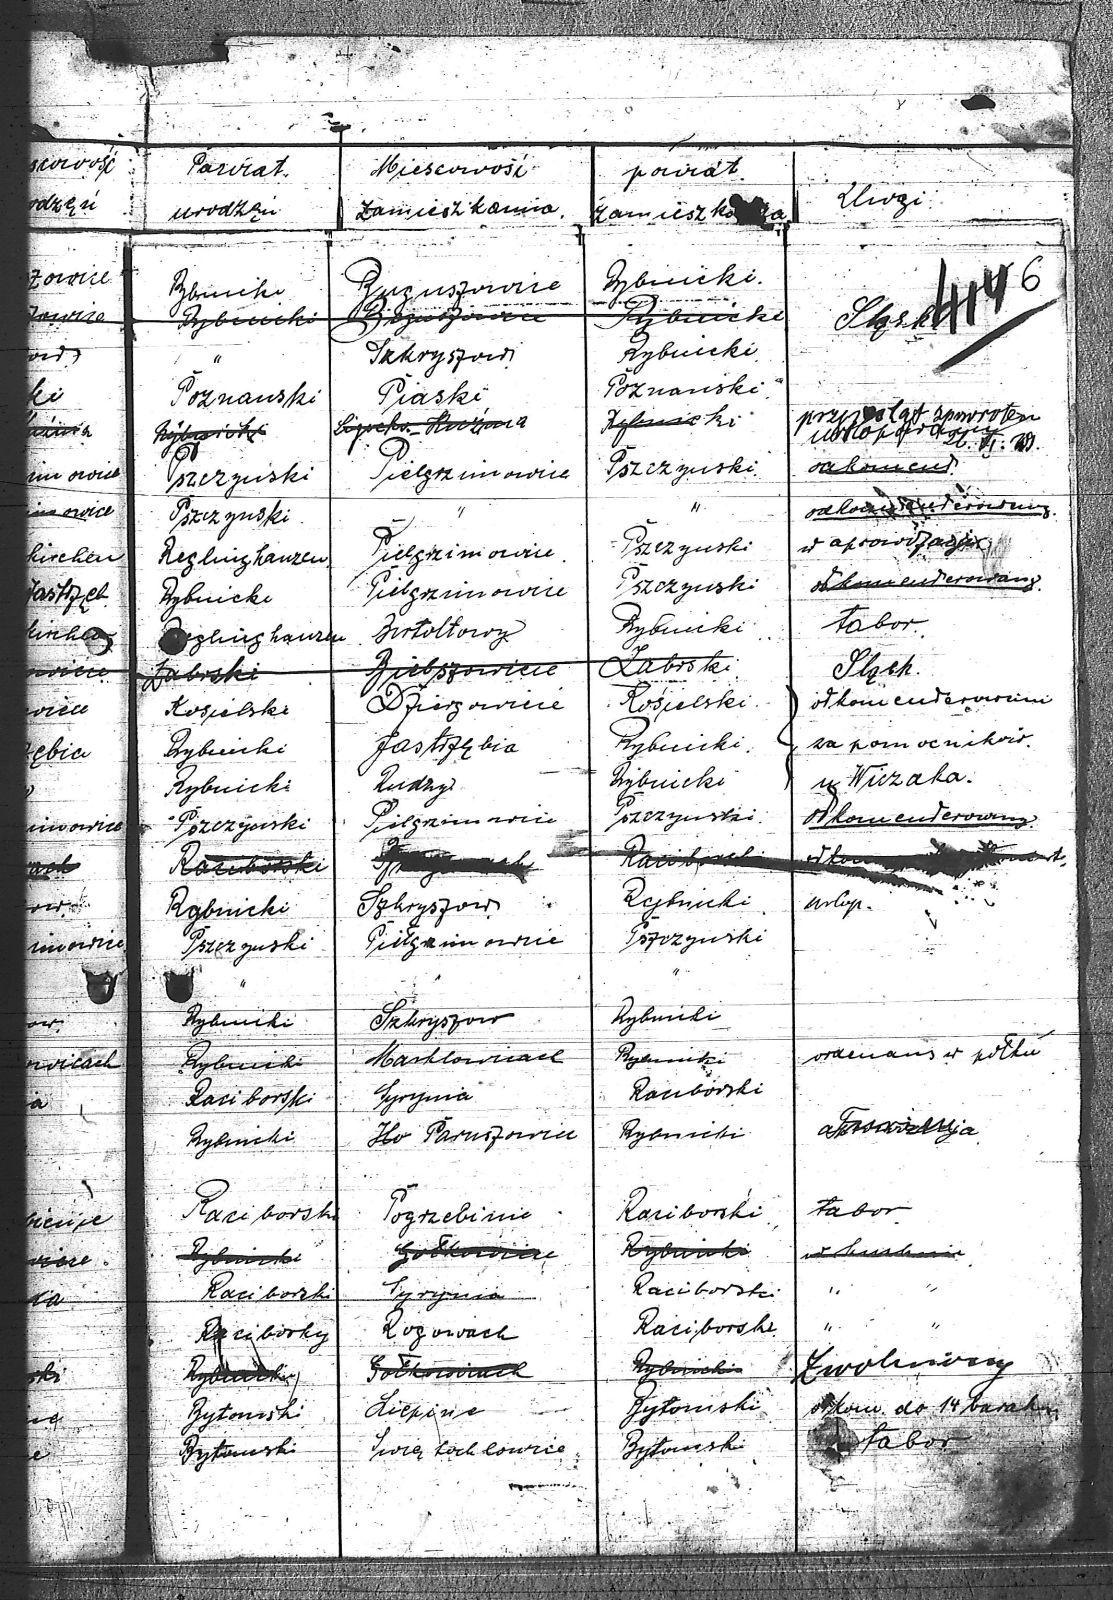 scowość Powiat. Miescowość powiat. Uwagi
odzęń urodzęń zamieszkania. zamieszkania
zowice Rybnicki Boguszowice Rybnicki. 6
zowice Rybnicki Boguszowice Rybnicki Sląsk
" " Szkryszow Rybnicki
ki Poznanski Piaski Poznański
Rybnicki Rybnicki zpowrotem
imowice Pszczynski Pielgrzimowice Pszczynski odkomend.
imowice Pszczynski " " odkomenderowany.
kirchen Reglinghauzen Pielgrzimowice Pszczynski w aprowizacji
Jastrzęb. Rybnicke Pielgrzimowice Pszczynski odkomenderowany.
kirchen Reglinghauzen Rybnicki tabor.
owicie Zabrski Bielszowicie Zabrski Sląsk.
wice Kosielski Dziergowicie Kośielski odkomenderowani
zębia Rybnicki Jastrzębia Rybnicki za pomocnikow.
Rybnicki Rudzy Rybnicki u Wiczaka.
imowice Pszczynski Pielgrzimowice Pszczynski odkomenderowany
ach Raciborski Raciborski
ow. Rybnicki Szkryszow Rybnicki urlop.
imowice Pszczynski Pielgrzimowice Pszczynski
" " "
ow. Rybnicki Szkryszow Rybnicki
owicach Rybnicki Marklowicach Rybnicki ordenans w połku
a Raciborski Syrynia Raciborski
Rybnicki Paruszowice Rybnicki
Raciborski Pogrzebinie Raciborski tabor
wice. Rybnicki Gołkowice Rybnicki w kuchnie
Raciborski Syrynia Raciborski " "
Raciborky Rogowach Raciborski " "
ski Rybnicki Gołkowicach Rybnicki Zwolniony
Bytomski Liepine Bytomski odkom. do 14 baraku
e Bytomski Swiętochlowice Bytomski tabor